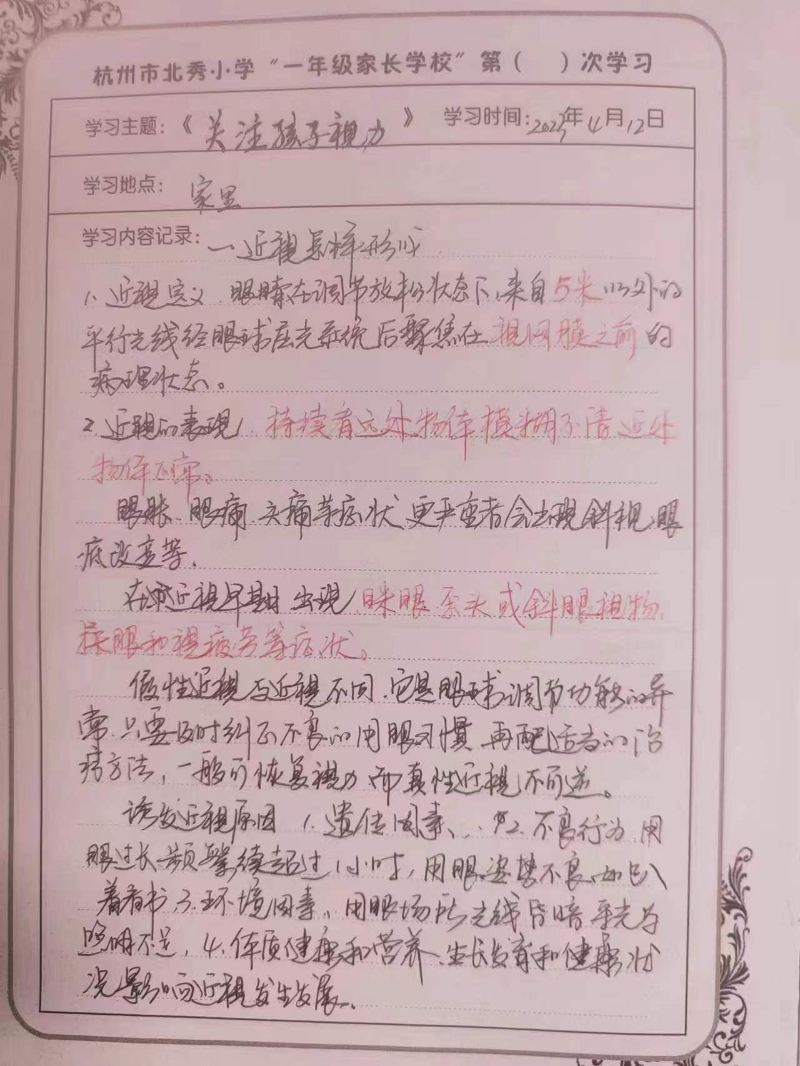 杭州市北秀小学“一年级家长学校”第（ ）次学习
学习主题：《关注孩子视力》 学习时间：2023年4月12日
学习地点：家里
学习内容记录：一近视怎样形成
1、近视定义 眼睛在调节放松状态下，来自5米以外的
平行光线经眼球屈光系统后聚焦在视网膜之前的
病理状态。
2、近视的表现 持续看远处物体模糊不清 近处
物体正常。
眼胀、眼痛、头痛等症状 更严重者会出现斜视 眼
底改变等，
在近视早期 出现 眯眼 歪头或斜眼视物，
揉眼和视疲劳等症状。
假性近视与近视不同，它是眼球调节功能的异
常，只要及时纠正不良的用眼习惯 再配适当的治
疗方法，一般可恢复视力 而真性近视不可逆。
诱发近视原因 1、遗传因素、2、不良行为 用
眼过长 频繁续超过1小时，用眼姿势不良，如趴
着看书，3、环境因素，用眼场所光线昏暗 采光与
照明不足，4、体质健康和营养，生长发育和健康状
况影响近视发生发展。